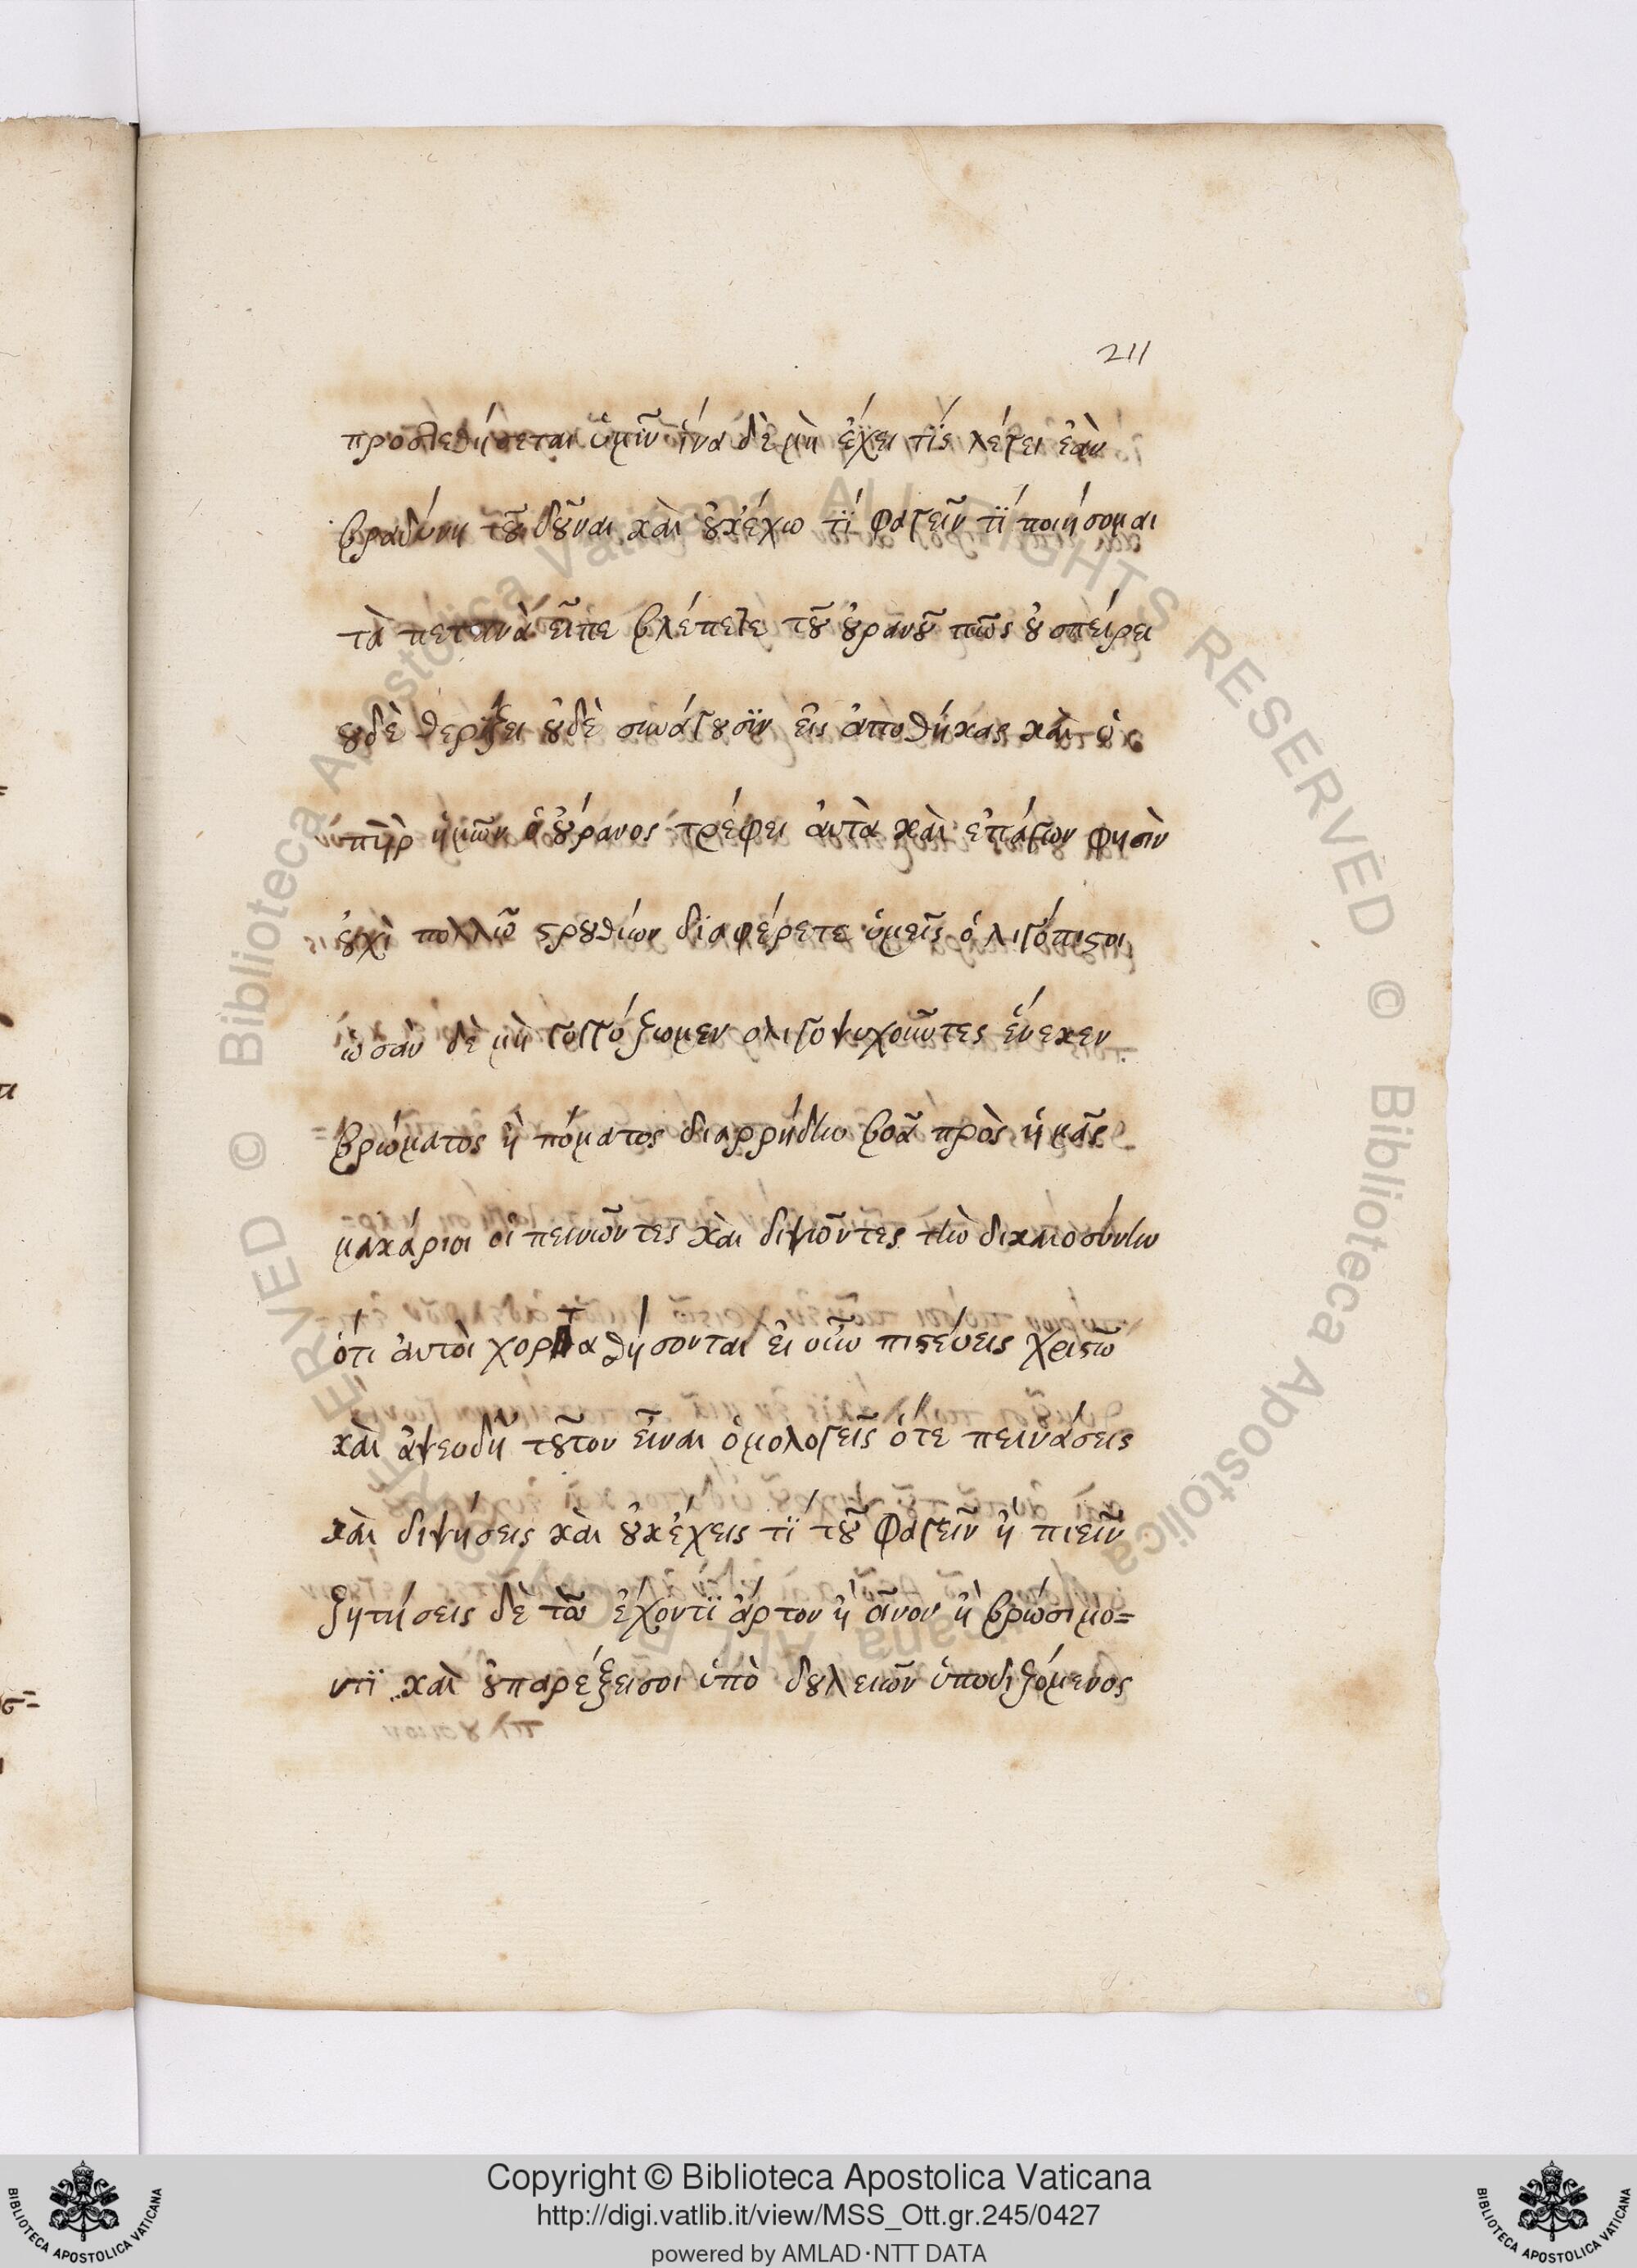 211
προστεθήσεται ὑμῖν ἵνα δὲ μὴ ἔχει τίς λέγει ἐὰν
βραδύνη τοῦ δοῦναι καὶ οὐκέχω τΐ φαγεῖν τΐ ποιήσομαι
τὰ πετεινὰ εἶπε βλέπετε τοῦ οὐρανοῦ πῶς οὐ σπείρει
οὐδὲ θερίζει οὐδὲ συνάγουσϊν εἰς ἀποθήκας καὶ ὁ
πηρ ἡμῶν ὁ οὐράνος τρέφει αὐτὰ καὶ ἐπάγων φησὶν
οὐχὶ πολλῶ στρουθίων διαφέρετε ὑμεῖς ὀλιγόπιστοι
ὡσὰν δὲ μὴ γογγύζωμεν ὀλιγοψυχοῦντες ἕνεκεν
βρώματος ἢ πόματος διαρρήδην βοᾶ πρὸς ἡμᾶς
μακάριοι οἱ πεινῶντες καὶ διψῶντες τὴν δικαιοσύνην
ὅτι αὐτοὶ χορταθήσονται εἰ οὖν πιστεύεις χριστῶ
καὶ ἀψευδῆ τοῦτον εἶναι ὁμολογεῖς ὅτε πεινάσεις
καὶ διψήσεις καὶ οὐκέχεις τΐ τοῦ φαγεῖν ἢ πιεῖν
ζητήσεις δὲ τῶ ἔχοντϊ ἄρτον ἢ οἶνον ἢ βρώσιμο=
ντϊ καὶ οὐπαρέξεισοι ὑπὸ δουλειῶν ὑποδιζόμενος
© Biblioteca Apostolica Vaticana ALL RIGHTS RESERVED
Copyright © Biblioteca Apostolica Vaticana
http://digi.vatlib.it/view/MSS_Ott.gr.245/0427
powered by AMLAD·NTT DATA
BIBLIOTECA APOSTOLICA VATICANA
BIBLIOTECA APOSTOLICA VATICANA